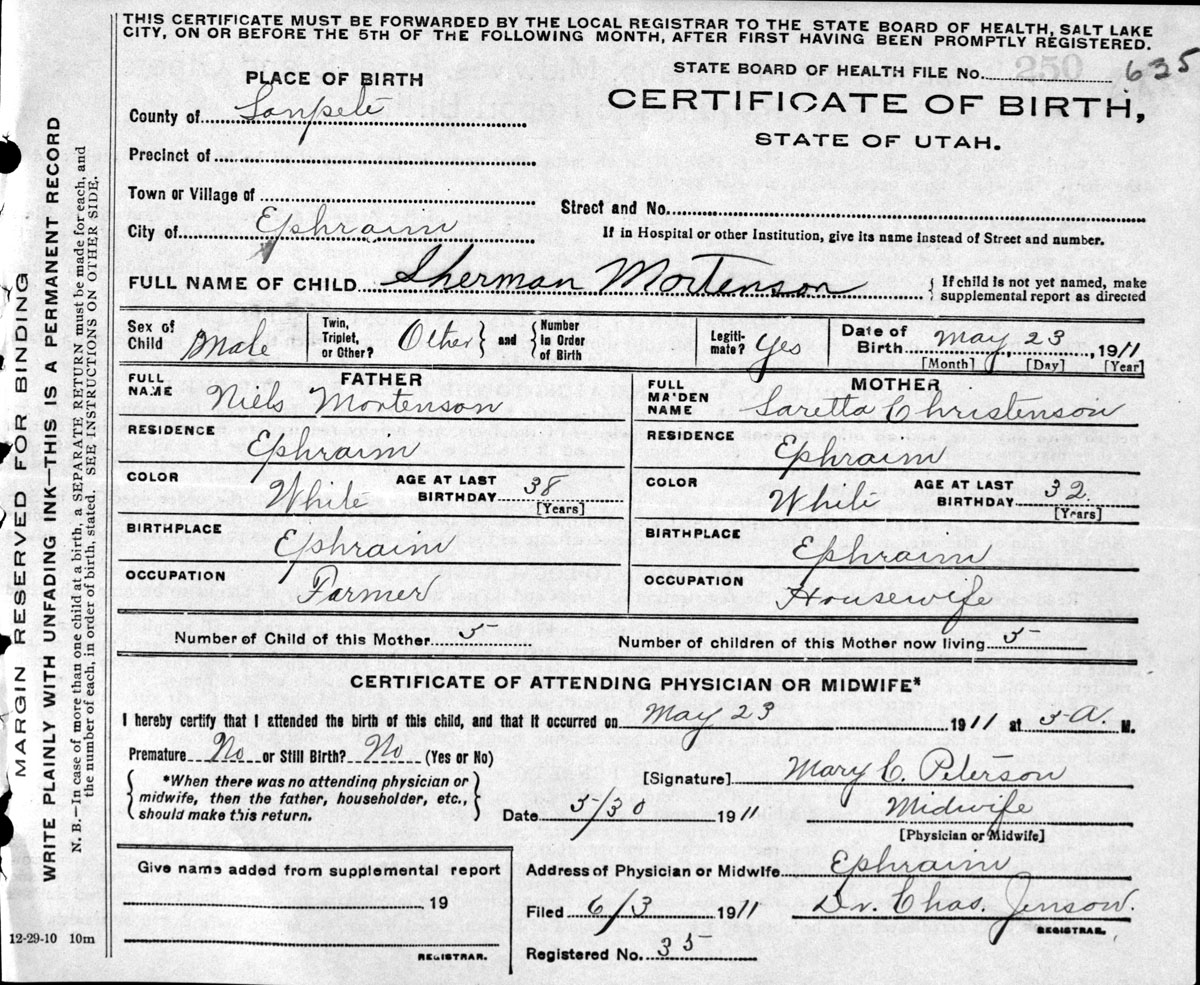 THIS CERTIFICATE MUST BE FORWARDED BY THE LOCAL REGISTRAR TO THE STATE BOARD OF HEALTH, SALT LAKE
CITY, ON OR BEFORE THE 5TH OF THE FOLLOWING MONTH, AFTER FIRST HAVING BEEN PROMPTLY REGISTERED.
MARGIN RESERVED FOR BINDING
WRITE PLAINLY WITH UNFADING INK—THIS IS A PERMANENT RECORD
N. B.—In case of more than one child at a birth, a SEPARATE RETURN must be made for each, and
the number of each, in order of birth, stated. SEE INSTRUCTIONS ON OTHER SIDE.
PLACE OF BIRTH
STATE BOARD OF HEALTH FILE No. 635
County of Sanpete
CERTIFICATE OF BIRTH,
STATE OF UTAH.
Precinct of
Town or Village of
Street and No.
City of Ephraim
If in Hospital or other Institution, give its name instead of Street and number.
FULL NAME OF CHILD Sherman Mortenson
If child is not yet named, make
supplemental report as directed
Sex of
Child Male
Twin,
Triplet,
or Other? Other
and
Number
In Order
of Birth
Legiti-
mate? Yes
Date of
Birth May 23, 1911
[Month] [Day] [Year]
FATHER
FULL
NAME Niels Mortenson
RESIDENCE Ephraim
COLOR White
AGE AT LAST
BIRTHDAY 38
[Years]
BIRTHPLACE Ephraim
OCCUPATION Farmer
MOTHER
FULL
MAIDEN
NAME Saretta Christenson
RESIDENCE Ephraim
COLOR White
AGE AT LAST
BIRTHDAY 32
[Years]
BIRTHPLACE Ephraim
OCCUPATION Housewife
Number of Child of this Mother 5
Number of children of this Mother now living 5
CERTIFICATE OF ATTENDING PHYSICIAN OR MIDWIFE*
I hereby certify that I attended the birth of this child, and that it occurred on May 23 1911 at 3 A. M.
Premature No or Still Birth? No (Yes or No)
*When there was no attending physician or
midwife, then the father, householder, etc.,
should make this return.
[Signature] Mary C. Peterson
Date 5/30 1911
Midwife
[Physician or Midwife]
Give name added from supplemental report
19
REGISTRAR.
Address of Physician or Midwife Ephraim
Filed 6/3 1911 Dr. Chas. Jenson.
REGISTRAR.
Registered No. 35
12-29-10 10m